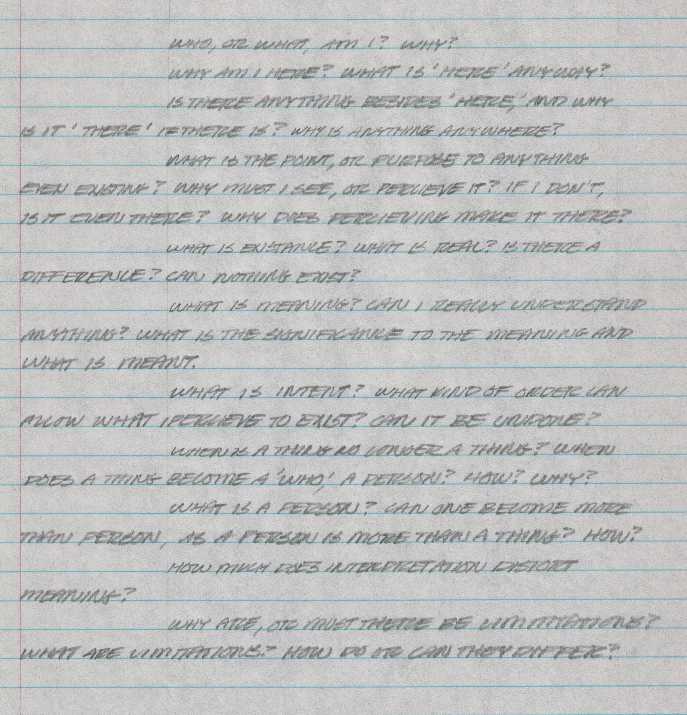 WHO, OR WHAT, AM I? WHY?
WHY AM I HERE? WHAT IS 'HERE' ANYWAY?
IS THERE ANYTHING BESIDES 'HERE,' AND WHY
IS IT 'THERE' IF THERE IS? WHY IS ANYTHING ANYWHERE?
WHAT IS THE POINT, OR PURPOSE TO ANYTHING
EVEN EXISTING? WHY MUST I SEE, OR PERCIEVE IT? IF I DON'T,
IS IT EVEN THERE? WHY DOES PERCIEVING MAKE IT THERE?
WHAT IS EXISTANCE? WHAT IS REAL? IS THERE A
DIFFERENCE? CAN NOTHING EXIST?
WHAT IS MEANING? CAN I REALLY UNDERSTAND
ANYTHING? WHAT IS THE SIGNIFICANCE TO THE MEANING AND
WHAT IS MEANT.
WHAT IS INTENT? WHAT KIND OF ORDER CAN
ALLOW WHAT I PERCIEVE TO EXIST? CAN IT BE UNDONE?
WHEN IS A THING NO LONGER A THING? WHEN
DOES A THING BECOME A 'WHO,' A PERSON? HOW? WHY?
WHAT IS A PERSON? CAN ONE BECOME MORE
THAN PERSON, AS A PERSON IS MORE THAN A THING? HOW?
HOW MUCH DOES INTERPRETATION DISTORT
MEANING?
WHY ARE, OR MUST THERE BE LIMITATIONS?
WHAT ARE LIMITATIONS? HOW DO OR CAN THEY DIFFER?